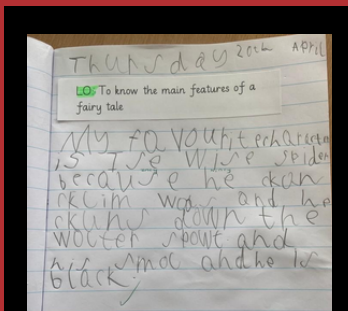 Thursday 20th April
LO: To know the main features of a
fairy tale
My favourit echaracte
is Tse Wise spider
because he ckan
cklim woos and he
ckuns down the
wolter spowt and
his smol and he is
black.